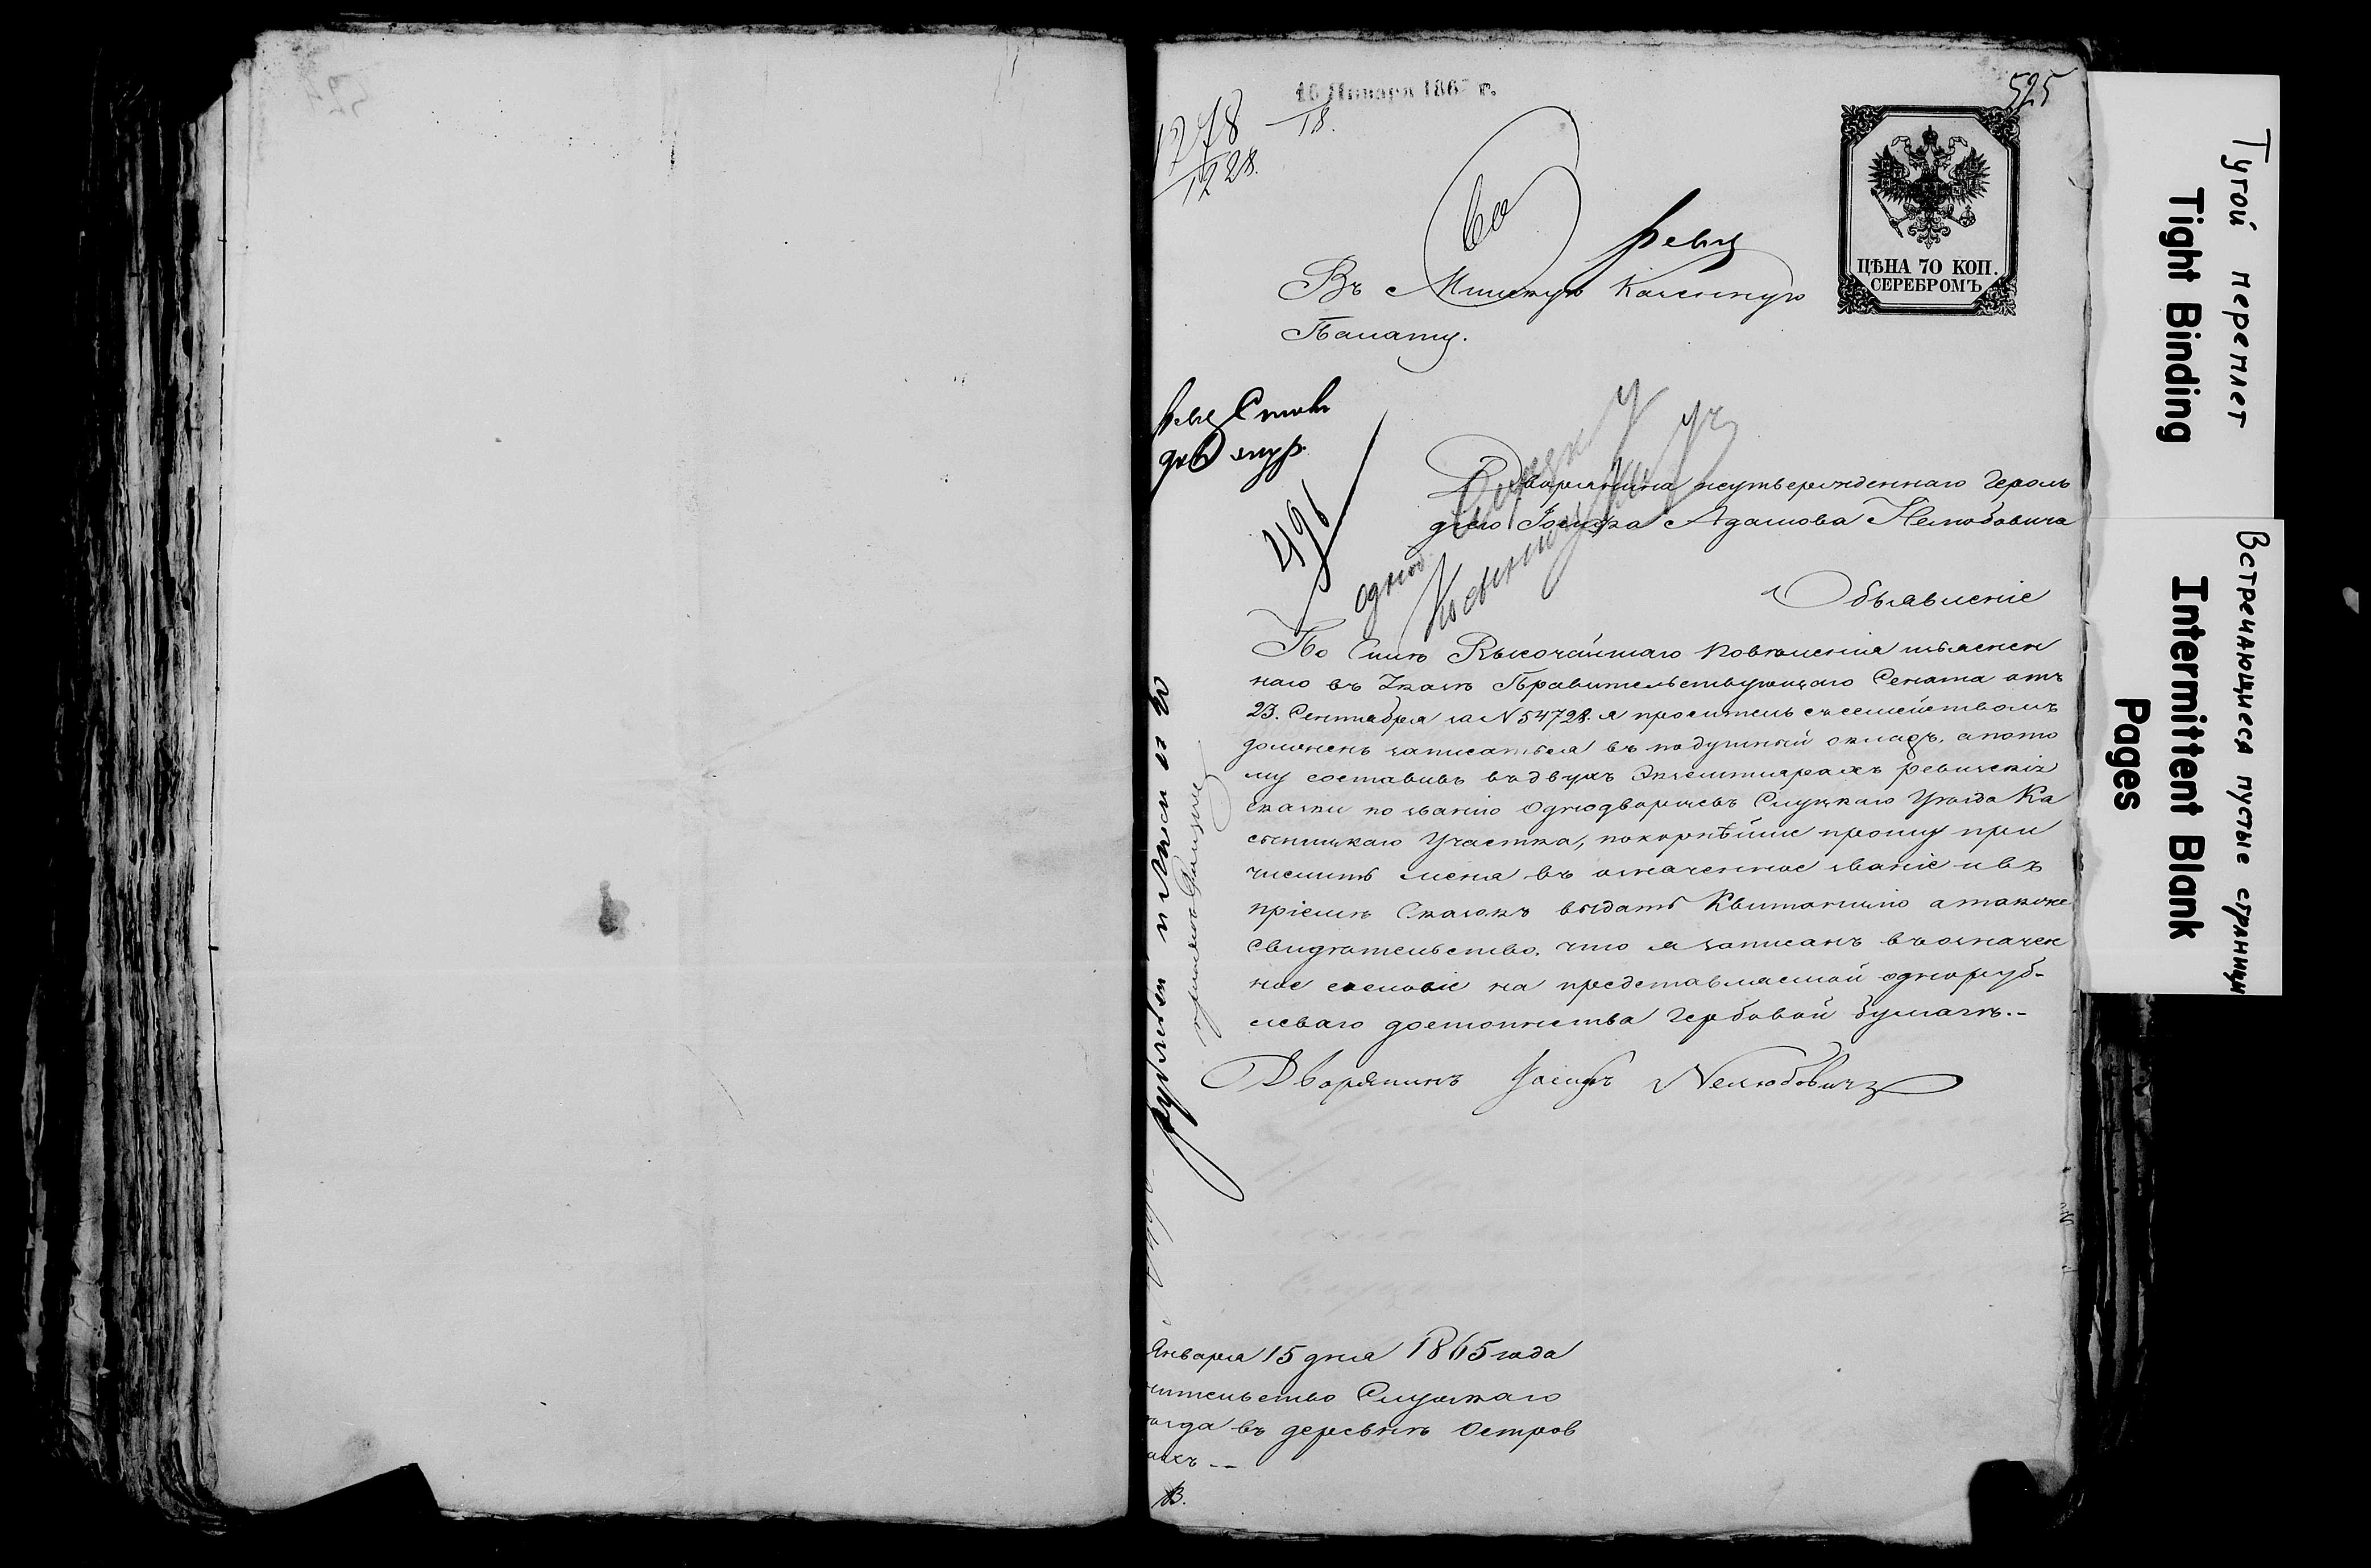 525
16 Января 186 г.
18.
1278
1228.
Во
ревиз
Въ Минскую Казенную
Палату.
ЦѢНА 70 КОП.
СЕРЕБРОМЪ.
496
Дворянина неутвержденнаго Героль
діею Іосифа Адамова Нелюбовича
Объявленіе
По Силѣ Высочайшаго повѣленія изъяснен
наго въ Указѣ Правительствующаго Сената отъ
23. Сентября за N 54728. я проситель съ семействомъ
долженъ записаться въ подушный окладъ, а пото
му составивъ въ двухъ Экземплярахъ ревизскіе
сказки по званію Однодворцевъ Слуцкаго Уѣзда
Участка, покорнѣйше прошу при
числить меня въ означенное званіе и въ
пріемѣ Сказокъ выдать Квитанцію а также
Свидѣтельство, что я записанъ въ означен
ное сословіе на представляемой одноруб-
леваго достоинства Гербовой бумагѣ.-
Дворянинъ Іосифъ Нелюбовичъ
Января 15 дня 1865 года
ительство Слуцкаго
ѣзда въ деревнѣ Остров
кахъ --
Тугой переплет
Tight Binding
Встречающиеся пустые страницы
Intermittent Blank
Pages